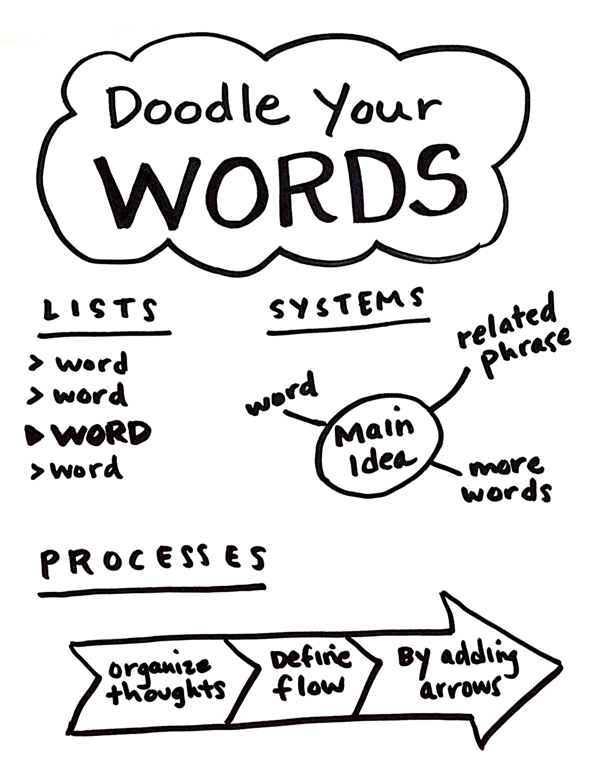 Doodle Your
WORDS
LISTS
> word
> word
▶ WORD
> word
SYSTEMS
word
Main
Idea
related
phrase
more
words
PROCESSES
organize
thoughts
Define
flow
By adding
arrows